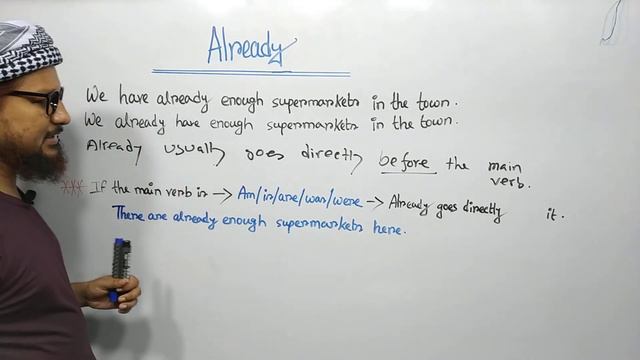 Already
We have already enough supermarkets in the town.
We already have enough supermarkets in the town.
Already usually goes directly before the main
verb.
*** If the main verb is → Am/is/are/was/were → Already goes directly it.
There are already enough supermarkets here.